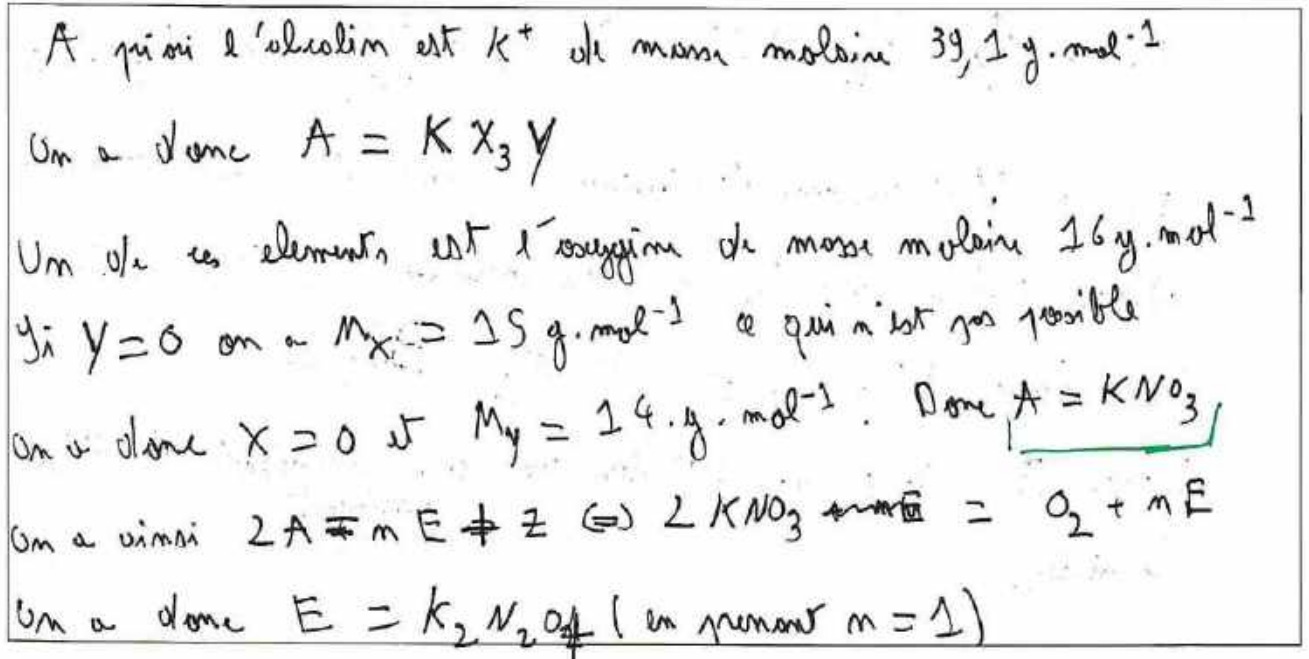 A priori l'alcalin est K⁺ de masse molaire 39,1 g.mol⁻¹
On a donc A = K X₃ Y
Un de ces elements est l'oxygène de masse molaire 16 g.mol⁻¹
Si Y = O on a Mₓ = 15 g.mol⁻¹ ce qui n'est pas possible
On a donc X = O et M_y = 14.g.mol⁻¹. Donc A = KNO₃
On a ainsi 2A = n E + Z ⇔ 2 KNO₃ = O₂ + n E
On a donc E = K₂N₂O₄ (en prenant n = 1)